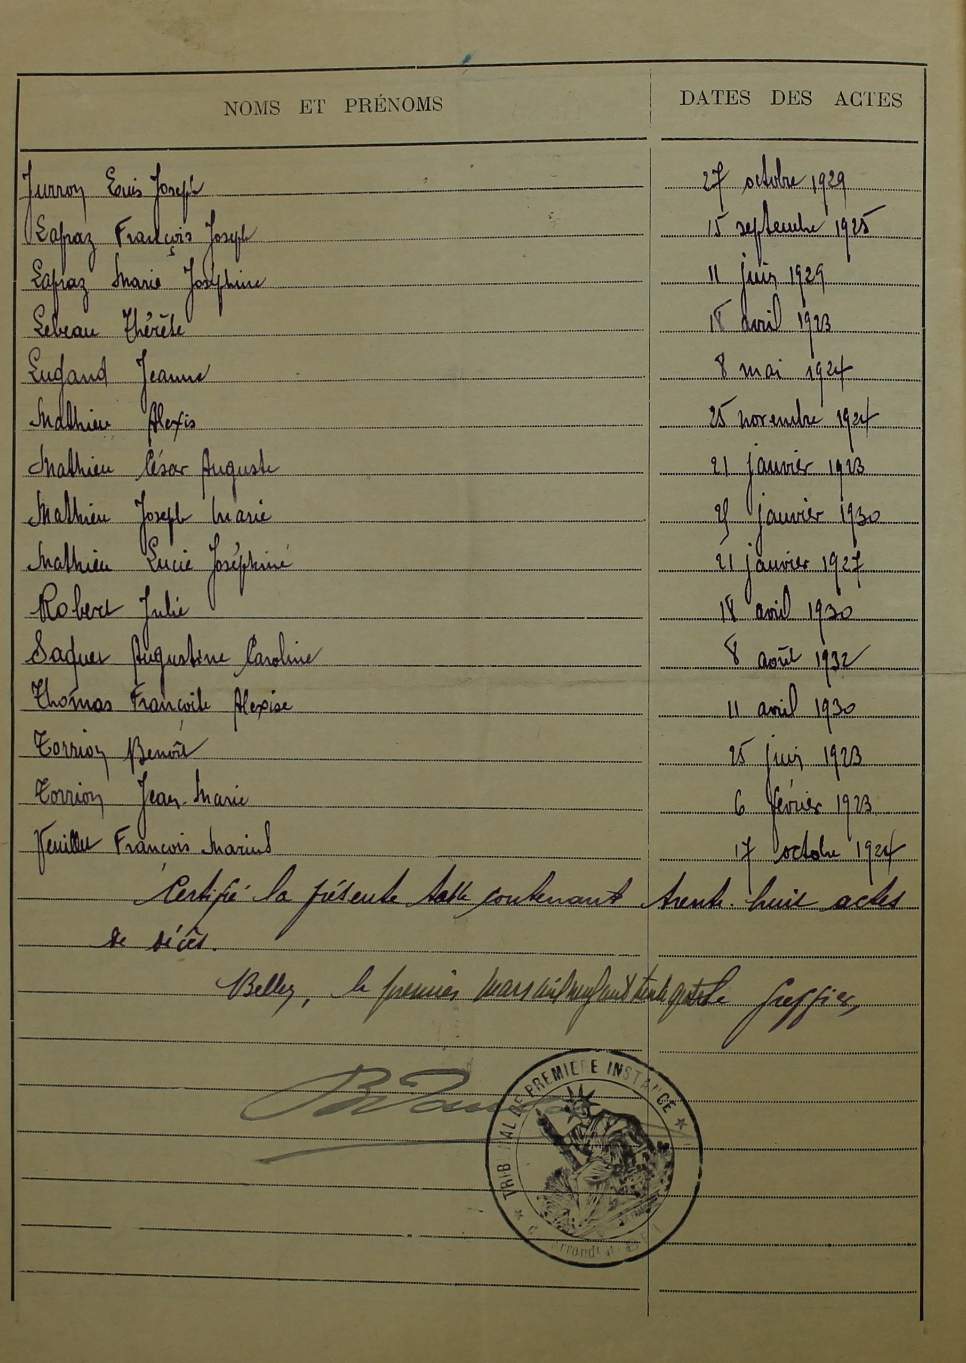 NOMS ET PRÉNOMS DATES DES ACTES
Jurron Louis Joseph 27 octobre 1929
Lapraz François Joseph 15 septembre 1925
Lapraz Marie Joséphine 11 juin 1929
Lebeau Thérèse 18 avril 1923
Lugand Jeanne 8 mai 1924
Mathieu Alexis 25 novembre 1924
Mathieu César Auguste 21 janvier 1923
Mathieu Joseph Marie janvier 1930
Mathieu Lucie Joséphine 21 janvier 1927
Robert Julie 18 avril 1930
Saquer Augustine Caroline 8 août 1932
Thomas Françoise Alexise 11 avril 1930
Torrion Benoît 25 juin 1923
Torrion Jean-Marie 6 février 1923
Veuillet François Marius 17 octobre 1924
Certifié la présente table contenant trente-huit actes
de décès.
Belley, le premier mars mil neuf cent trente quatre le Greffier,
TRIBUNAL DE PREMIERE INSTANCE